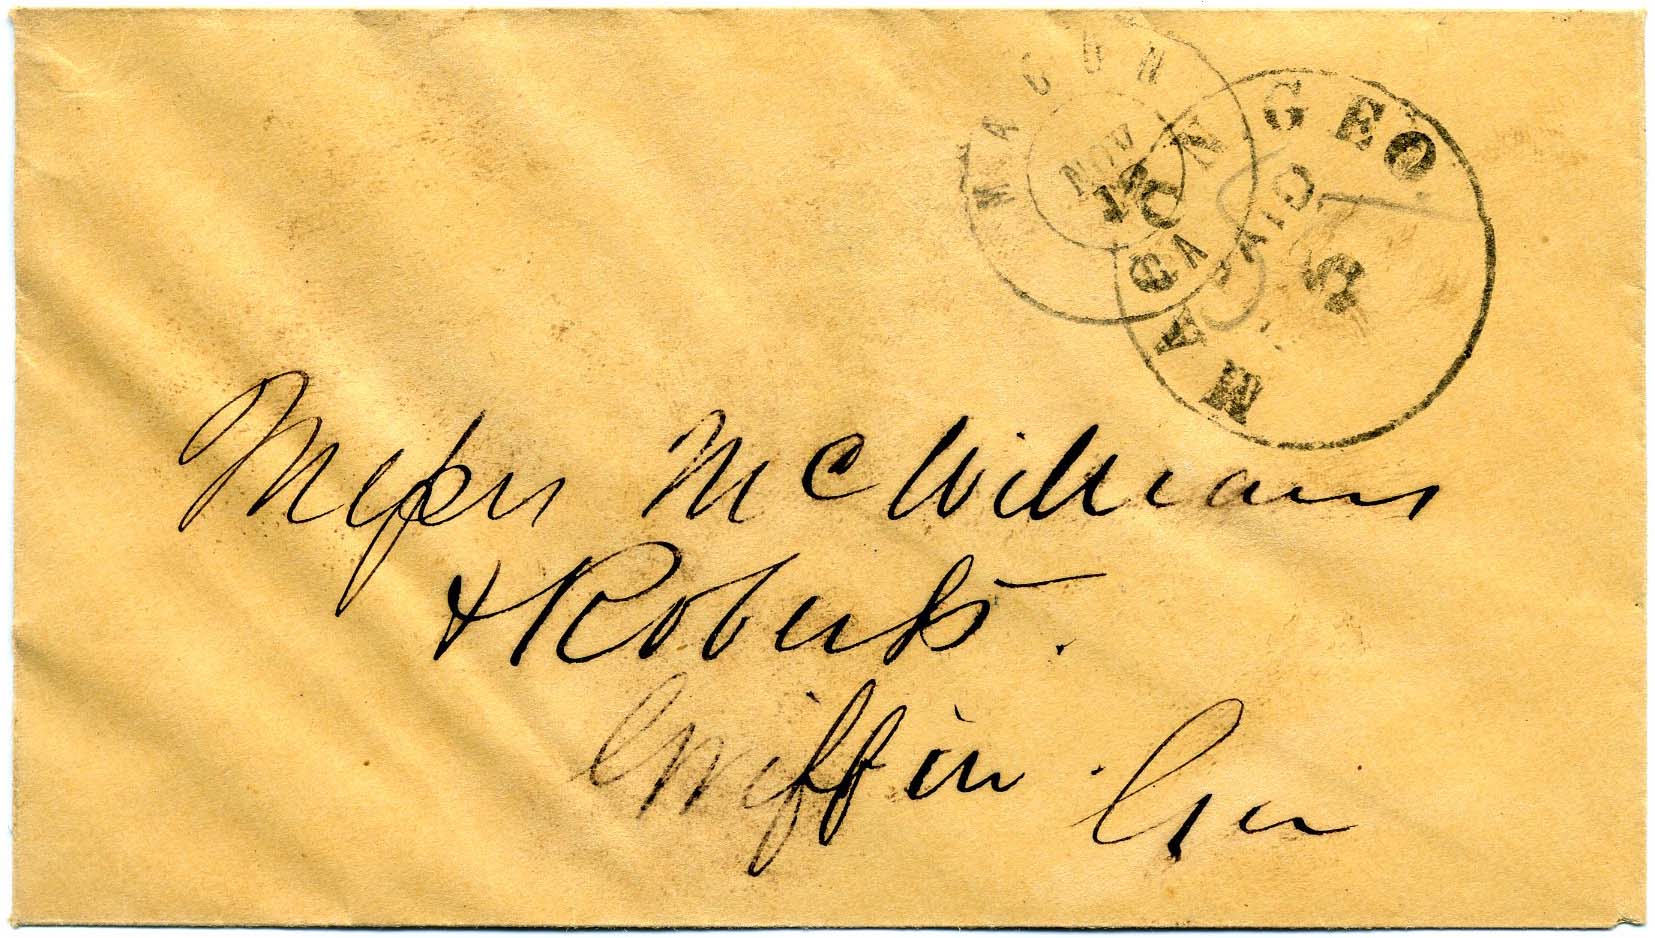 MACON
GA
NOV
MACON GEO
PAID
5
Messrs McWilliams
& Roberts.
Griffin Geo